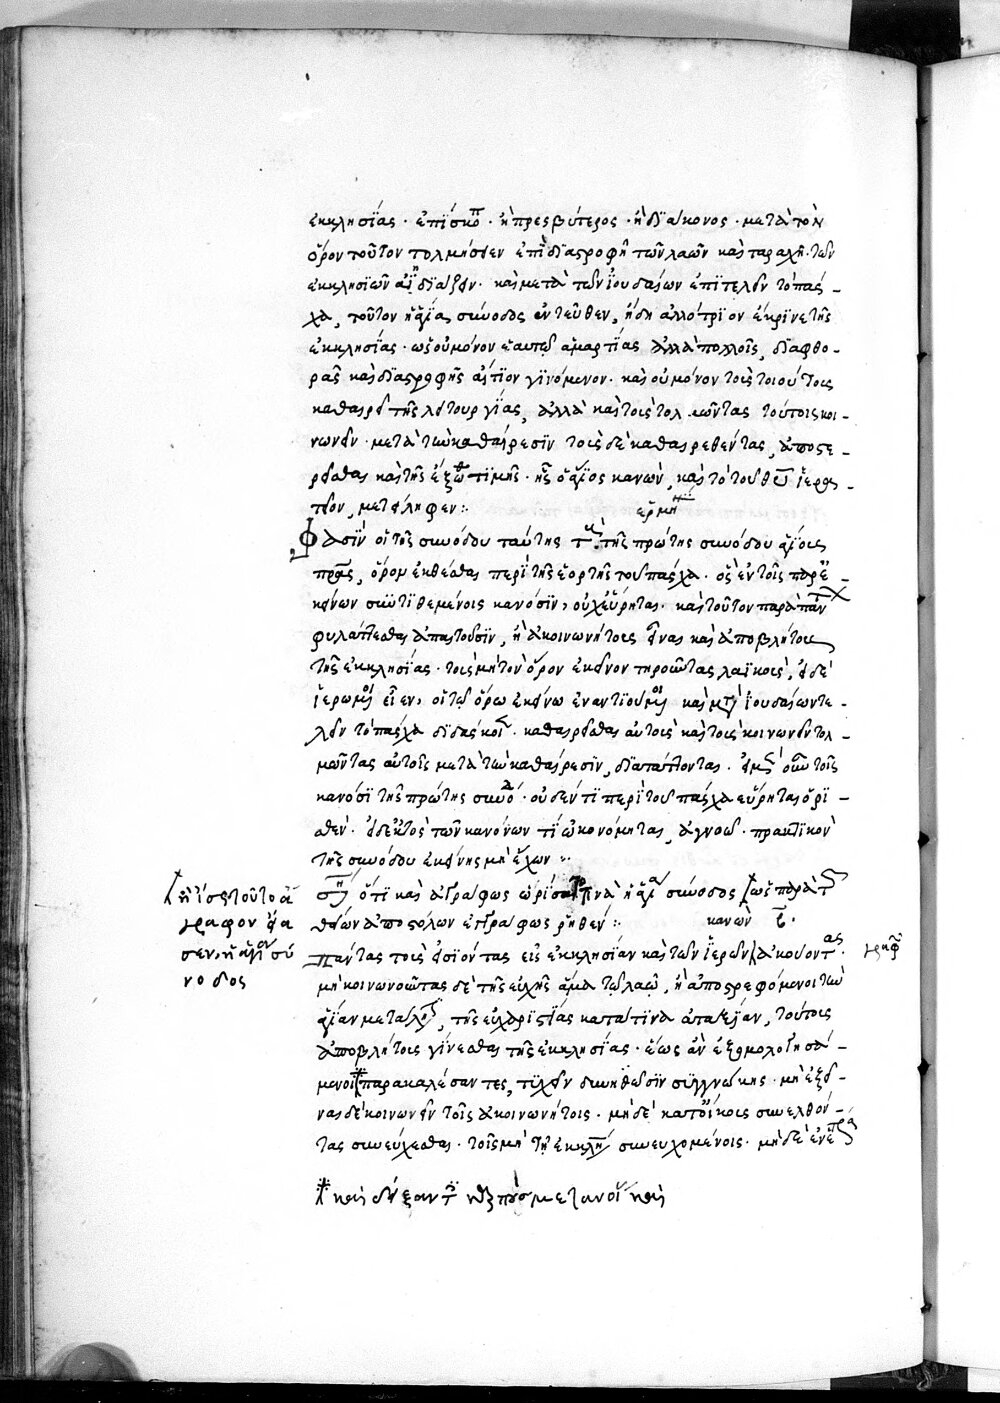 ἐκκλησίας · ἐπίσκοπ · ἢ πρεσβύτερος · ἢ διάκονος · μετὰ τὸν
ὅρον τοῦτον τολμήσειεν ἐπὶ διαστροφῆ τῶν λαῶν καὶ ταραχῆ τῶν
ἐκκλησιῶν ἰδιάζειν · καὶ μετὰ τῶν ἰουδαίων ἐπιτελεῖν τὸ πάσ-
χα, τοῦτον ἡ ἁγία σύνοδος ἐντεῦθεν, ἤδη ἀλλότριον ἔκρινε τῆς
ἐκκλησίας · ὡς οὐ μόνον ἑαυτῶ ἁμαρτίας ἀλλὰ πολλοῖς, διαφθο-
ρᾶς καὶ διαστροφῆς αἴτιον γινόμενον · καὶ οὐ μόνον τοὺς τοιούτους
καθαιρεῖ τῆς λειτουργίας, ἀλλὰ καὶ τοὺς τολμῶντας τούτοις κοι-
νωνεῖν μετὰ τὴν καθαίρεσιν τοὺς δὲ καθαιρεθέντας, ἀποστε-
ρεῖσθαι καὶ τῆς ἔξωθ τιμῆς · ἧς ὁ ἅγιος κανὼν, καὶ τὸ τοῦ θυ ἱερα-
τεῖον, μετείληφεν :
ἑρμη
Φασὶν οἱ τῆς συνόδου ταύτης τ τῆς πρώτης συνόδου ἁγίοις
πράς, ὅρον ἐκθέσθαι περὶ τῆς ἑορτῆς τοῦ πάσχα · ὃς ἐν τοῖς παρ ἐ-
κείνων συντιθεμένοις κανόσιν, οὐχ εὕρηται · καὶ τοῦτον παρὰ πάντ
φυλάττεσθαι ἀπαιτοῦσιν, ἢ ἀκοινωνήτους εἶναι καὶ ἀποβλήτους
τῆς ἐκκλησίας · τοὺς μὴ τὸν ὅρον ἐκεῖνον τηροῦντας λαϊκοὺς, εἰ δὲ
ἱερωμ εἶεν, οἱ τῶ ὅρω ἐκείνω ἐναντιούμ καὶ μετ ἰουδαίων τε-
λεῖν τὸ πάσχα διδάσκοντ · καθαιρεῖσθαι αὐτοὺς καὶ τοὺς κοινωνεῖν τολ-
μῶντας αὐτοῖς μετὰ τὴν καθαίρεσιν, διαπράττονται · ἐμ οὖν τοῖς
κανόσι τῆς πρώτης συνόδ · οὐδέν τι περὶ τοῦ πάσχα εὕρηται ὁρι-
σθέν · εἰ δ ἐκτὸς τῶν κανόνων τί ὠκονόμηται, ἀγνοῶ · πρακτικὸν
τῆς συνόδου ἐκείνης μὴ ἔχων :
ση ὅτι καὶ ἀγράφως ὥρισε τινὰ ἡ ἁγία σύνοδος ὡς παρὰ τ
θείων ἀποστόλων ἐγγράφως ῥηθέν : κανὼν β ·
ἢ ἴσως τοῦτο ἄ
γραφον εἴα
σεν, ἡ ἁγία σύ
νοδος
Πάντας τοὺς εἰσιόντας εἰς ἐκκλησίαν καὶ τῶν ἱερῶν ἀκούοντας ·
γραφ
μὴ κοινωνοῦντας δὲ τῆς εὐχῆς ἅμα τῶ λαῶ, ἢ ἀποστρεφόμενοι τὴν
ἁγίαν μετάλη, τῆς εὐχαριστίας κατά τινα ἀταξίαν, τούτους
ἀποβλήτους γίνεσθαι τῆς ἐκκλησίας · ἕως ἂν ἐξομολογησά-
μενοι παρακαλέσαντες, τυχεῖν δυνηθῶσιν συγγνώμης · μὴ ἐξεῖ-
ναι δὲ κοινωνεῖν τοῖς ἀκοινωνήτοις · μηδὲ κατ οἴκους συνελθόν-
τας συνεύχεσθαι · τοῖς μὴ τῆ ἐκκλη συνευχομένοις · μηδὲ ἐν ἑτέρα
καὶ δείξαντ καρποὺς μετανοί καὶ